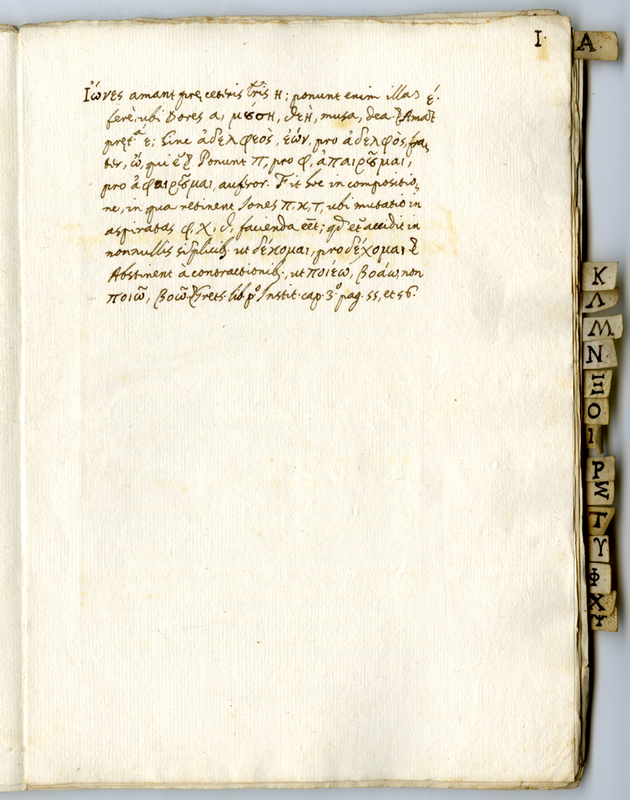 I·
A
Ἴωνες amant præ ceteris lris H; ponunt enim illas é.
ferè, ubi Dores α, μȣ́ση, ϑεὴ, musa, dea. Amāt
præt. ε; hinc ἀδελφεὸς, ἐών, pro ἀδελφὸς, fra,
ter, ὤ, qui Ponunt π, pro φ, ἀπαιρȣ͂μαι,
pro ἀφαιρȣ͂μαι, aufror. Fit hoc in compositio,
ne, in qua retinent Iones π, κ, τ, ubi mutatio in
aspiratas φ, χ, ϑ, facienda eēt; qd et accidit in
nonnullis siplicib. ut δέκομαι, pro δέχομαι
Abstinent à contractionib., ut ποιέω, βοάω, non
ποιῶ, βοῶ. Grets. lib. pº Instit. cap. 3º pag. 55, et 56.
Κ
Λ
Μ
Ν
Ξ
Ο
Ρ
Σ
Τ
Υ
Φ
Χ